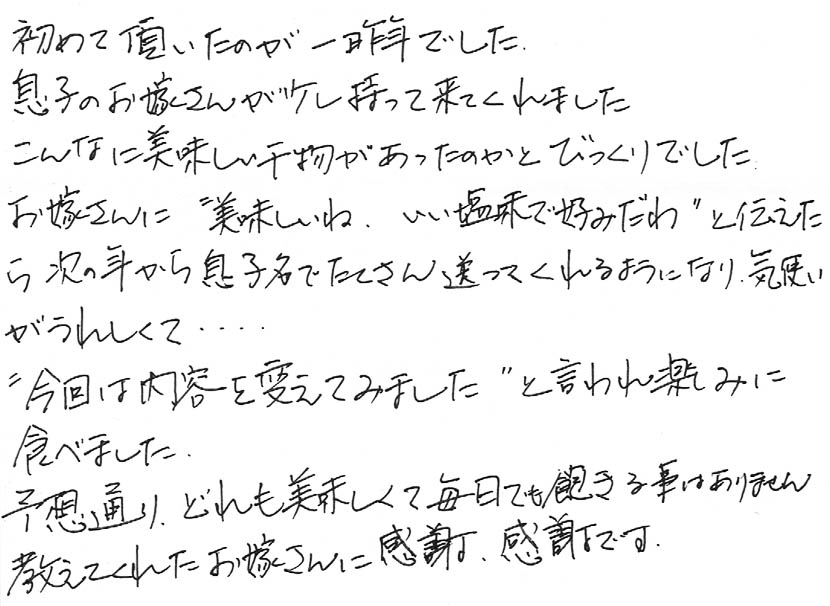 初めて頂いたのが一昨年でした.
息子のお嫁さんが少し持って来てくれました
こんなに美味しい干物があったのかとびっくりでした.
お嫁さんに〝美味しいね. いい塩味で好みだわ〟と伝えた
ら次の年から息子名でたくさん送ってくれるようになり.気使い
がうれしくて・・・・
〝今回は内容を変えてみました〟と言われ楽しみに
食べました.
予想通り.どれも美味しくて毎日でも飽きる事はありません
教えてくれたお嫁さんに感謝、感謝です.